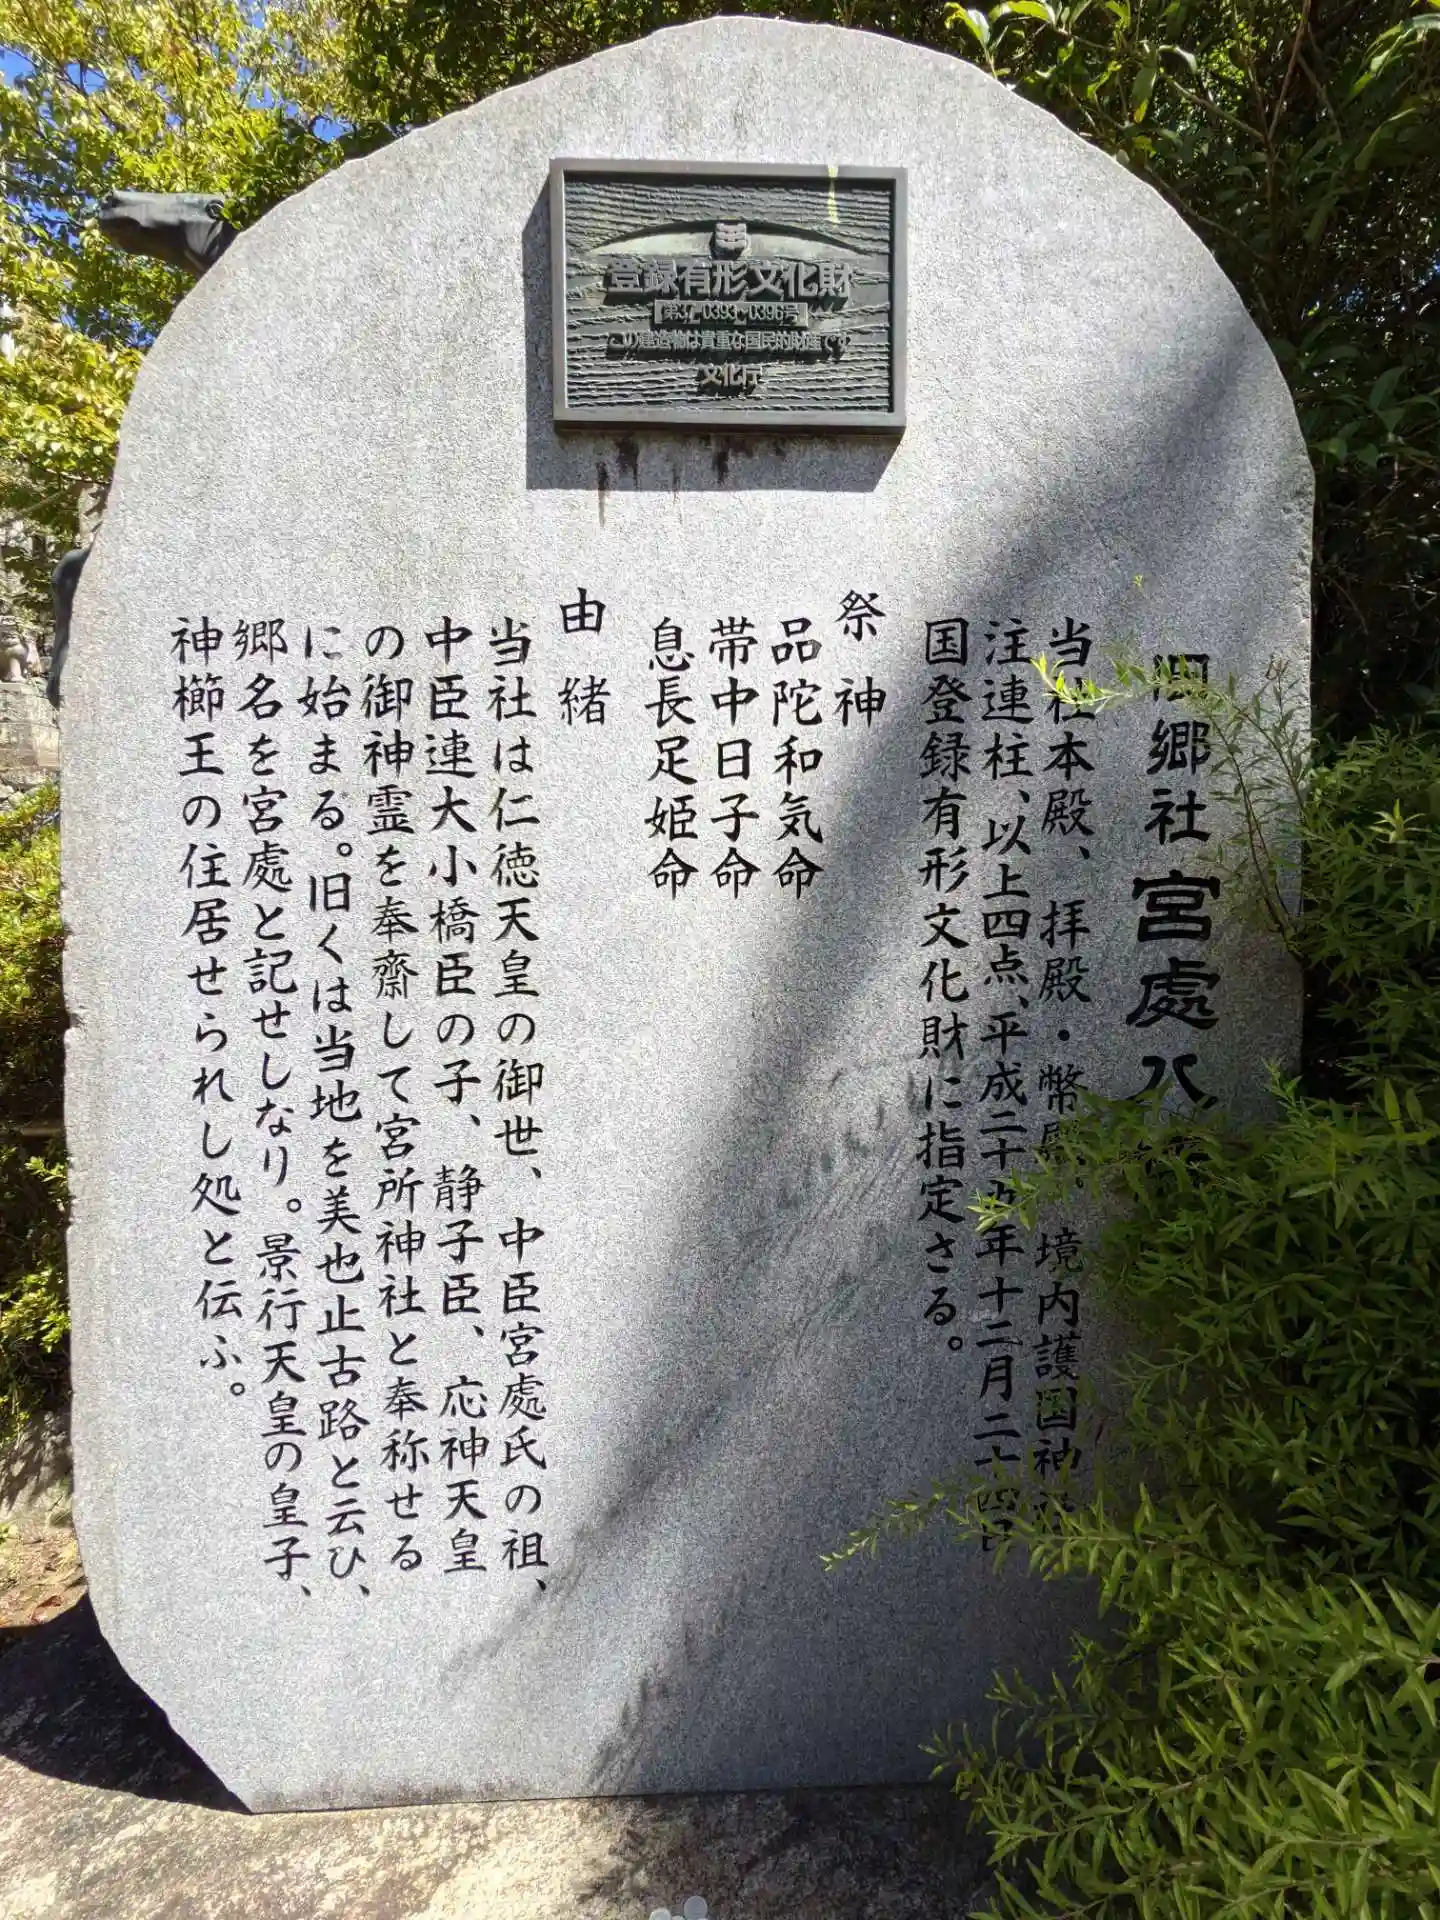 登録有形文化財
第37-0393~0396号
この建造物は貴重な国民的財産です
文化庁
旧郷社 宮處八
当社本殿、拝殿・幣殿、境内護国神社
注連柱、以上四点、平成二十五年十二月二十四日
国登録有形文化財に指定さる。
祭神
品陀和気命
帯中日子命
息長足姫命
由緒
当社は仁徳天皇の御世、中臣宮處氏の祖、
中臣連大小橋臣の子、静子臣、応神天皇
の御神霊を奉齋して宮所神社と奉称せる
に始まる。旧くは当地を美也止古路と云ひ、
郷名を宮處と記せしなり。景行天皇の皇子、
神櫛王の住居せられし処と伝ふ。